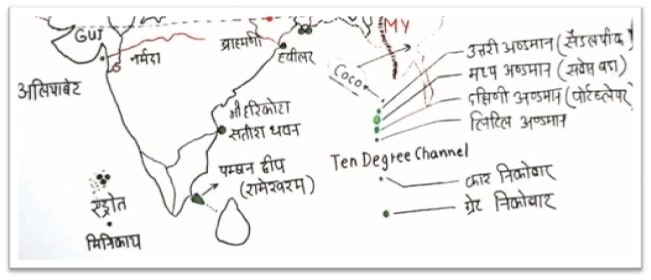 GUJ
नर्मदा
अलियाबेट
ब्राह्मणी
व्हीलर
MY
Coco
उत्तरी अण्डमान (सैडलपीक)
मध्य अण्डमान (सबसे बडा)
दक्षिणी अण्डमान (पोर्टब्लेयर)
लिटिल अण्डमान
श्री हरिकोटा
सतीश धवन
Ten Degree Channel
पम्बन द्वीप
(रामेश्वरम)
कार निकोबार
ग्रेट निकोबार
एड्रोत
मिनिकाय